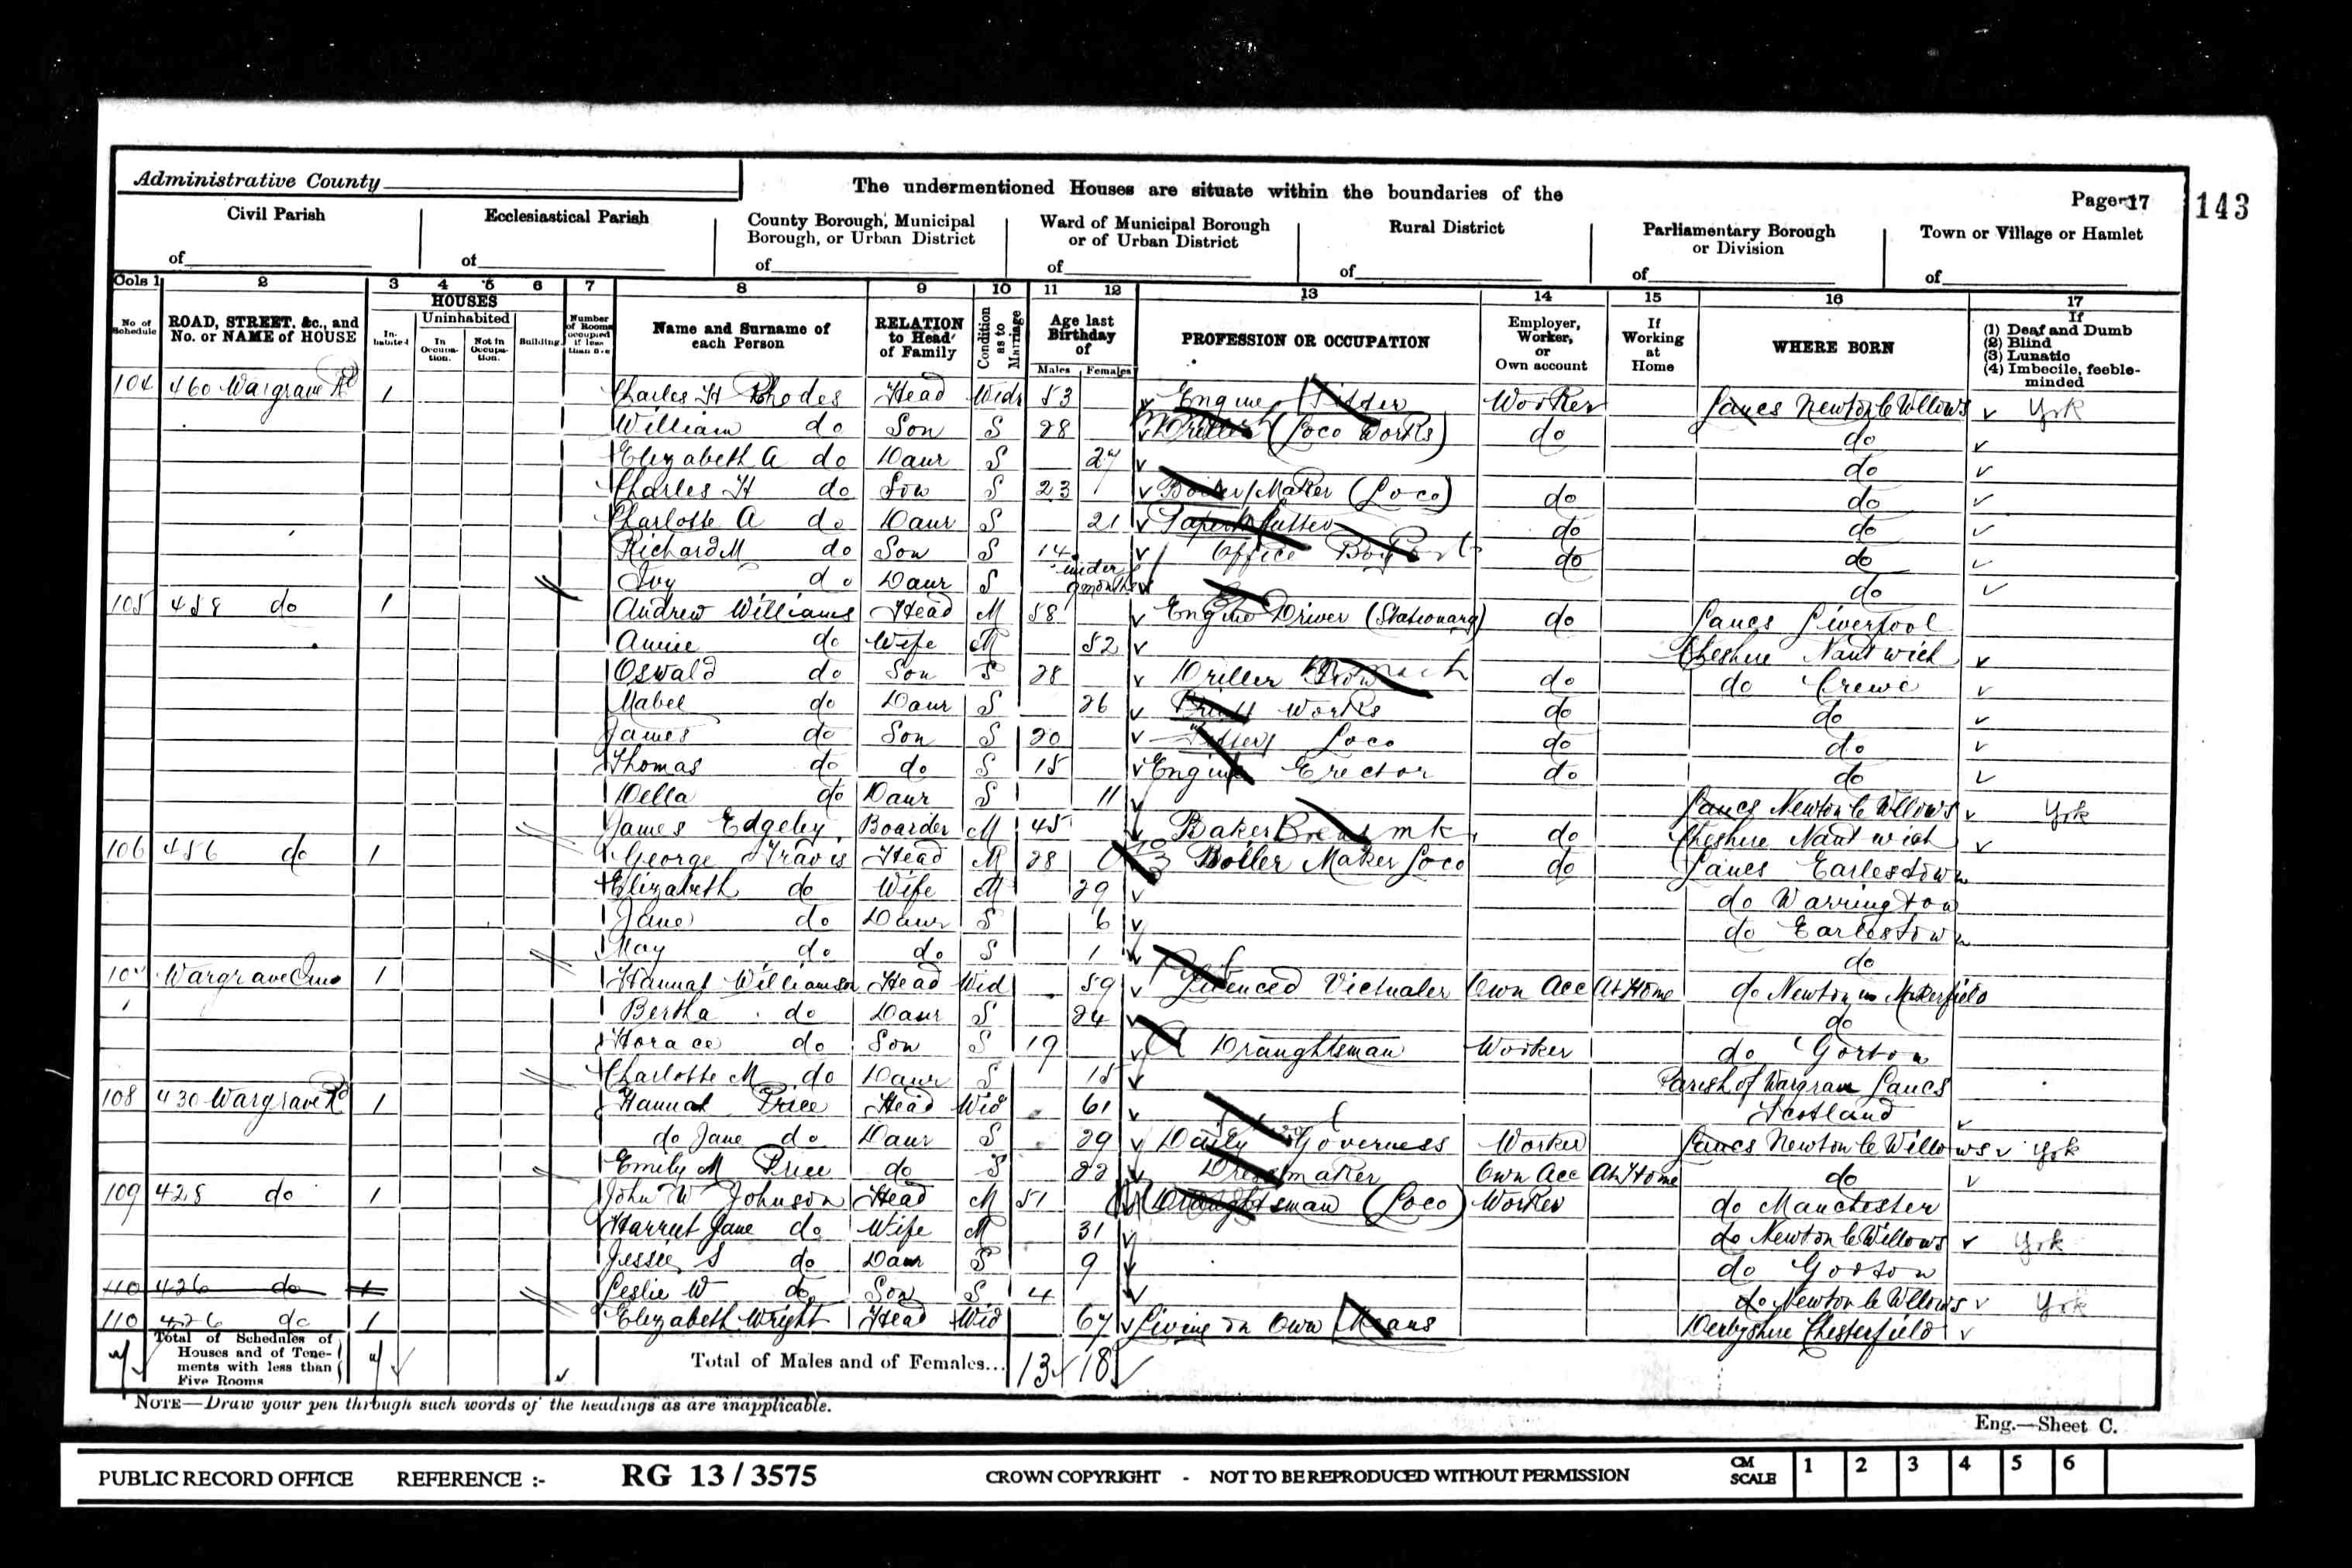 Administrative County
The undermentioned Houses are situate within the boundaries of the
Page 17
143
Civil Parish
of
Ecclesiastical Parish
of
County Borough, Municipal Borough, or Urban District
of
Ward of Municipal Borough or of Urban District
of
Rural District
of
Parliamentary Borough or Division
of
Town or Village or Hamlet
of
Cols 1 2 3 4 5 6 7 8 9 10 11 12 13 14 15 16 17
No of Schedule
ROAD, STREET, &c., and No. or NAME of HOUSE
HOUSES
Inhabited
Uninhabited
In Occupation.
Not in Occupation.
Building
Number of Rooms occupied if less than five
Name and Surname of each Person
RELATION to Head of Family
Condition as to Marriage
Age last Birthday of
Males Females
PROFESSION OR OCCUPATION
Employer, Worker, or Own account
If Working at Home
WHERE BORN
If
(1) Deaf and Dumb
(2) Blind
(3) Lunatic
(4) Imbecile, feeble-minded
104 460 Wargrave Rd 1 Charles H Rhodes Head Widr 53 Engine Fitter Worker Lancs Newton le Willows York
William do Son S 28 Driller (Loco Works) do do
Elizabeth A do Daur S 27 do
Charles H do Son S 23 Boiler Maker (Loco) do do
Charlotte A do Daur S 21 Paper Cutter do do
Richard M do Son S 14 Office Boy do do
Ivy do Daur S under 9 months do
105 458 do 1 Andrew Williams Head M 58 Engine Driver (Stationary) do Lancs Liverpool
Annie do Wife M 52 Cheshire Nantwich
Oswald do Son S 28 Driller do do Crewe
Mabel do Daur S 26 Print Works do do
James do Son S 20 Fitter Loco do do
Thomas do do S 15 Engine Erector do do
Della do Daur S 11 Lancs Newton le Willows York
James Edgeley Boarder M 45 Baker Bread mk do Cheshire Nantwich
106 456 do 1 George Travis Head M 28 Boiler Maker Loco do Lancs Earlestown
Elizabeth do Wife M 29 do Warrington
Jane do Daur S 6 do Earlestown
May do do S 1 do
107 Wargrave Inn 1 Hannah Williamson Head Wid 59 Licenced Victualer Own Acc At Home do Newton in Makerfield
Bertha do Daur S 24 do
Horace do Son S 19 Draughtsman Worker do Gorton
Charlotte M do Daur S 15 Parish of Wargrave Lancs
108 430 Wargrave Rd 1 Hannah Price Head Wid 61 Scotland
do Jane do Daur S 29 Daily Governess Worker Lancs Newton le Willows York
Emily M Price do S 22 Dressmaker Own Acc At Home do
109 428 do 1 John W Johnson Head M 51 Draughtsman (Loco) Worker do Manchester
Harriet Jane do Wife M 31 do Newton le Willows York
Jessie S do Daur S 9 do Gorton
110 426 do 1 Leslie W do Son S 4 do Newton le Willows York
110 426 do 1 Elizabeth Wright Head Wid 67 Living on Own Means Derbyshire Chesterfield
Total of Schedules of Houses and of Tenements with less than Five Rooms
Total of Males and of Females... 13 18
NOTE—Draw your pen through such words of the headings as are inapplicable.
Eng.—Sheet C.
PUBLIC RECORD OFFICE REFERENCE :- RG 13 / 3575 CROWN COPYRIGHT - NOT TO BE REPRODUCED WITHOUT PERMISSION CM SCALE 1 2 3 4 5 6